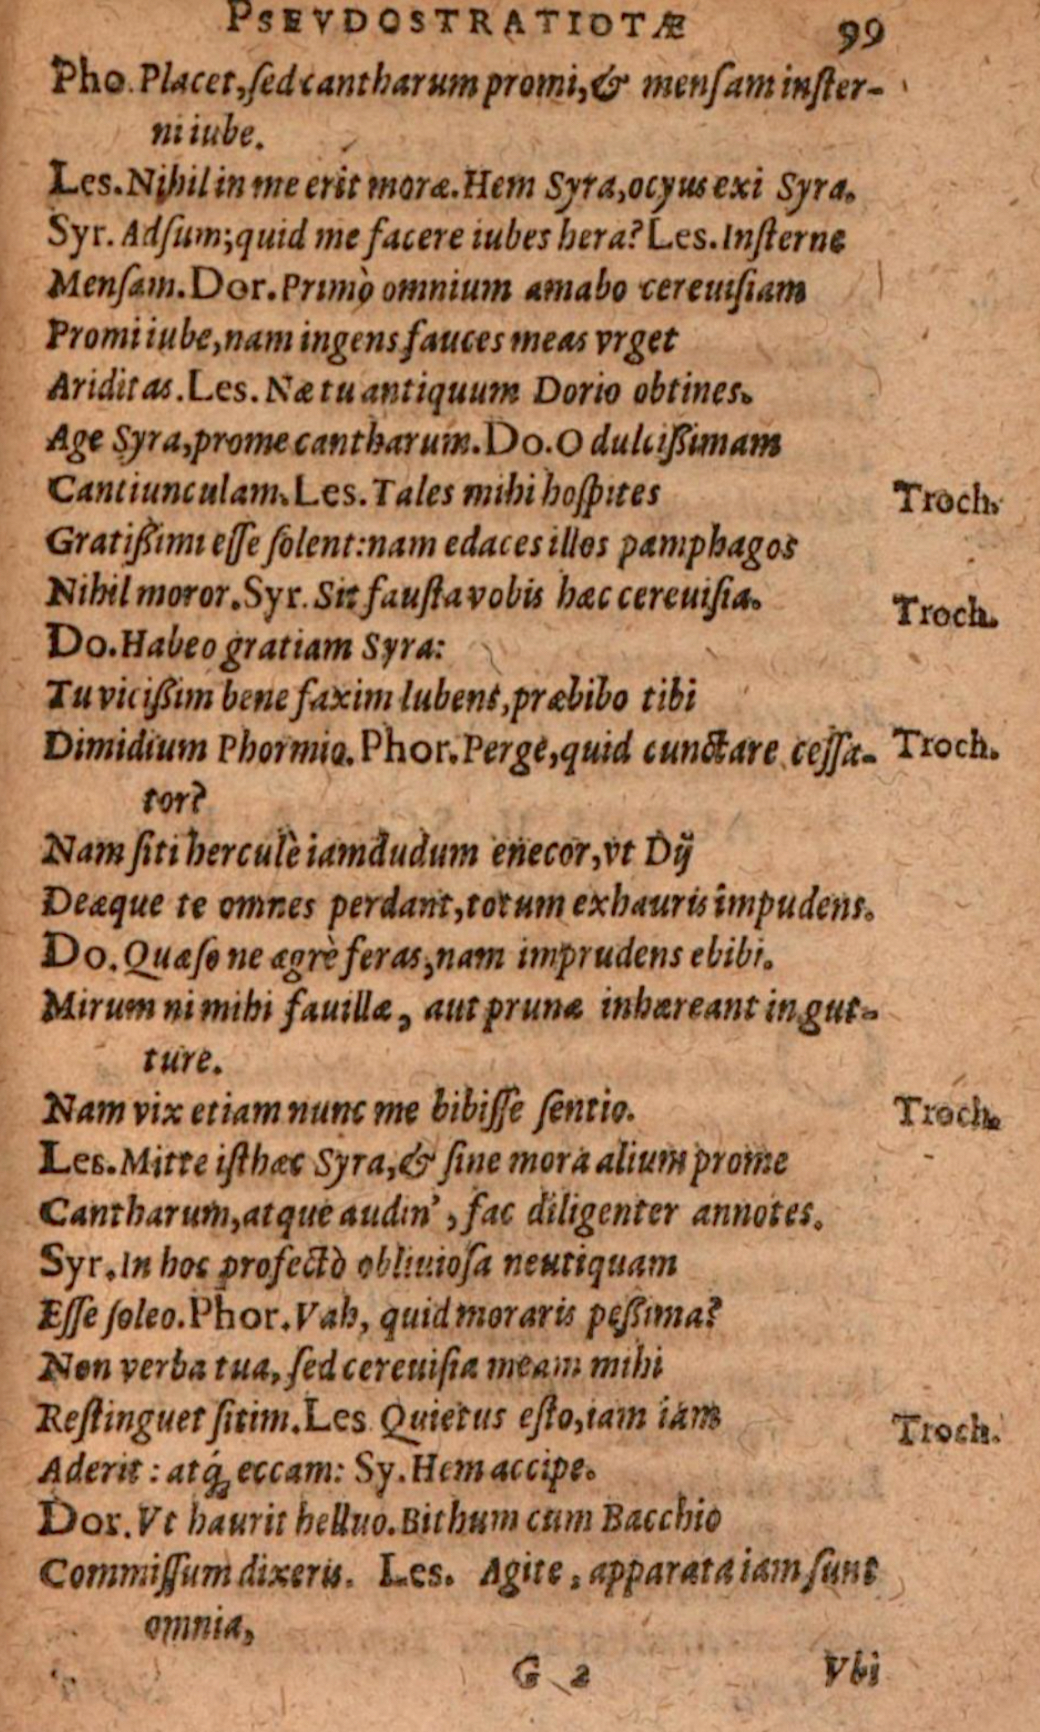 PSEVDOSTRATIOTÆ 99
Pho. Placet, ſed cantharum promi, & menſam inſter-
ni iube.
Les. Nihil in me erit moræ. Hem Syra, ocyus exi Syra.
Syr. Adſum; quid me facere iubes hera? Les. Inſterne
Menſam. Dor. Primò omnium amabo cereuiſiam
Promi iube, nam ingens fauces meas vrget
Ariditas. Les. Næ tu antiquum Dorio obtines.
Age Syra, prome cantharum. Do. O dulcißimam
Cantiunculam. Les. Tales mihi hoſpites Troch.
Gratißimi eſſe ſolent: nam edaces illos pamphagos
Nihil moror. Syr. Sit fauſta vobis hæc cereuiſia. Troch.
Do. Habeo gratiam Syra:
Tu vicißim bene faxim lubens, præbibo tibi
Dimidium Phormio. Phor. Perge, quid cunctare ceſſa- Troch.
tor?
Nam ſiti herculè iamdudum enecor, vt Dij
Deæque te omnes perdant, totum exhauris impudens.
Do. Quæſo ne ægrè feras, nam imprudens ebibi.
Mirum ni mihi fauillæ, aut prunæ inhæreant in gut-
ture.
Nam vix etiam nunc me bibiſſe ſentio. Troch.
Les. Mitte iſthæc Syra, & ſine mora alium prome
Cantharum, atque audin', fac diligenter annotes.
Syr. In hoc profectò obliuioſa neutiquam
Eſſe ſoleo. Phor. Vah, quid moraris peßima?
Non verba tua, ſed cereuiſia meam mihi
Reſtinguet ſitim. Les Quietus eſto, iam iam Troch.
Aderit: atq́; eccam: Sy. Hem accipe.
Dor. Vt haurit helluo. Bithum cum Bacchio
Commiſſum dixeris. Les. Agite, apparata iam ſunt
omnia,
G 2 Vbi